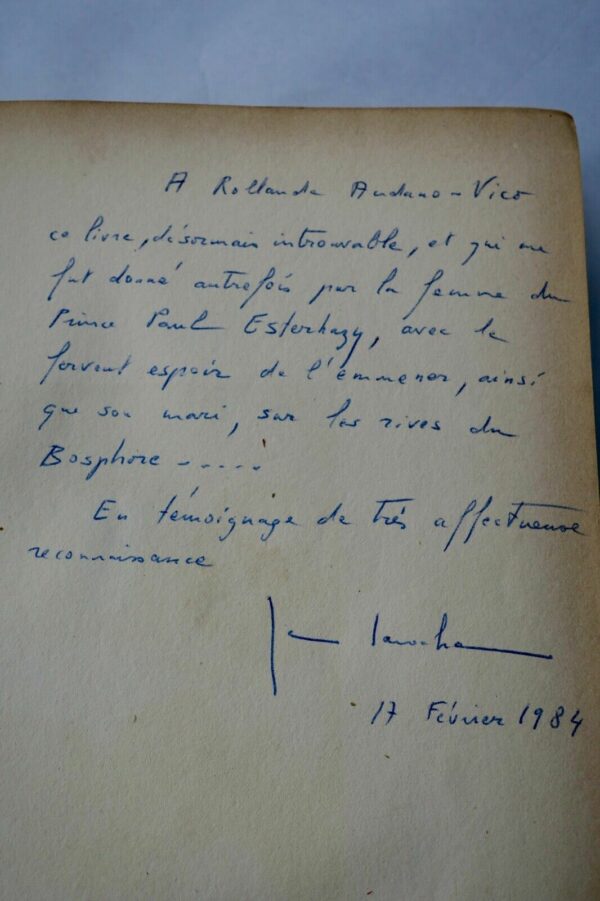 A Rollande Andano-Vico
ce livre, désormais introuvable, et qui me
fut donné autrefois par la femme du
Prince Paul Esterhazy, avec le
fervent espoir de l'emmener, ainsi
que son mari, sur les rives du
Bosphore - . . . .
En témoignage de très affectueuse
reconnaissance
17 Février 1984